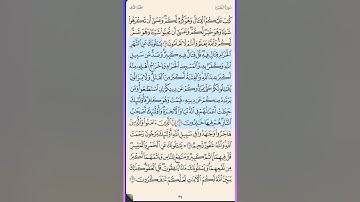 الجزء الثاني سورة البقرة
كُتِبَ عَلَيْكُمُ ٱلْقِتَالُ وَهُوَ كُرْهٌ لَّكُمْ وَعَسَىٰٓ أَن تَكْرَهُوا۟
شَيْـًٔا وَهُوَ خَيْرٌ لَّكُمْ وَعَسَىٰٓ أَن تُحِبُّوا۟ شَيْـًٔا وَهُوَ شَرٌّ
لَّكُمْ وَٱللَّهُ يَعْلَمُ وَأَنتُمْ لَا تَعْلَمُونَ ٢١٦ يَسْـَٔلُونَكَ عَنِ ٱلشَّهْرِ
ٱلْحَرَامِ قِتَالٍ فِيهِ قُلْ قِتَالٌ فِيهِ كَبِيرٌ وَصَدٌّ عَن سَبِيلِ
ٱللَّهِ وَكُفْرٌۢ بِهِۦ وَٱلْمَسْجِدِ ٱلْحَرَامِ وَإِخْرَاجُ أَهْلِهِۦ مِنْهُ
أَكْبَرُ عِندَ ٱللَّهِ وَٱلْفِتْنَةُ أَكْبَرُ مِنَ ٱلْقَتْلِ وَلَا يَزَالُونَ
يُقَـٰتِلُونَكُمْ حَتَّىٰ يَرُدُّوكُمْ عَن دِينِكُمْ إِنِ ٱسْتَطَـٰعُوا۟ وَمَن
يَرْتَدِدْ مِنكُمْ عَن دِينِهِۦ فَيَمُتْ وَهُوَ كَافِرٌ فَأُو۟لَـٰٓئِكَ
حَبِطَتْ أَعْمَـٰلُهُمْ فِى ٱلدُّنْيَا وَٱلْـَٔاخِرَةِ وَأُو۟لَـٰٓئِكَ أَصْحَـٰبُ
ٱلنَّارِ هُمْ فِيهَا خَـٰلِدُونَ ٢١٧ إِنَّ ٱلَّذِينَ ءَامَنُوا۟ وَٱلَّذِينَ
هَاجَرُوا۟ وَجَـٰهَدُوا۟ فِى سَبِيلِ ٱللَّهِ أُو۟لَـٰٓئِكَ يَرْجُونَ رَحْمَتَ
ٱللَّهِ وَٱللَّهُ غَفُورٌ رَّحِيمٌ ٢١٨ ۞ يَسْـَٔلُونَكَ عَنِ ٱلْخَمْرِ وَٱلْمَيْسِرِ
قُلْ فِيهِمَآ إِثْمٌ كَبِيرٌ وَمَنَـٰفِعُ لِلنَّاسِ وَإِثْمُهُمَآ أَكْبَرُ
مِن نَّفْعِهِمَا وَيَسْـَٔلُونَكَ مَاذَا يُنفِقُونَ قُلِ ٱلْعَفْوَ كَذَٰلِكَ
يُبَيِّنُ ٱللَّهُ لَكُمُ ٱلْـَٔايَـٰتِ لَعَلَّكُمْ تَتَفَكَّرُونَ ٢١٩